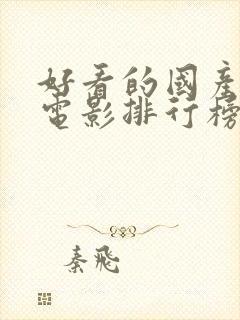 好看的國產
電影排行榜
秦飛